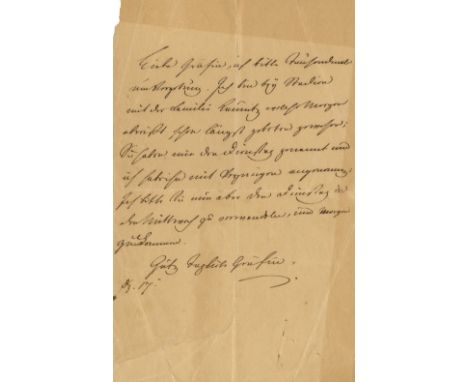 Liebe Gräfin, ich bitte Tausendmal
um Vergebung. Ich bin bey Stadion
mit der Familie welche Morgen
abreist schon längst gebeten gewesen;
Sie haben mir den Dienstag genannt und
ich habe ihn mit Vergnügen angenommen;
Ich bitte Sie nun aber den Dienstag in
den Mittwoch zu verwandeln, und Morgen
Gräfin.
17